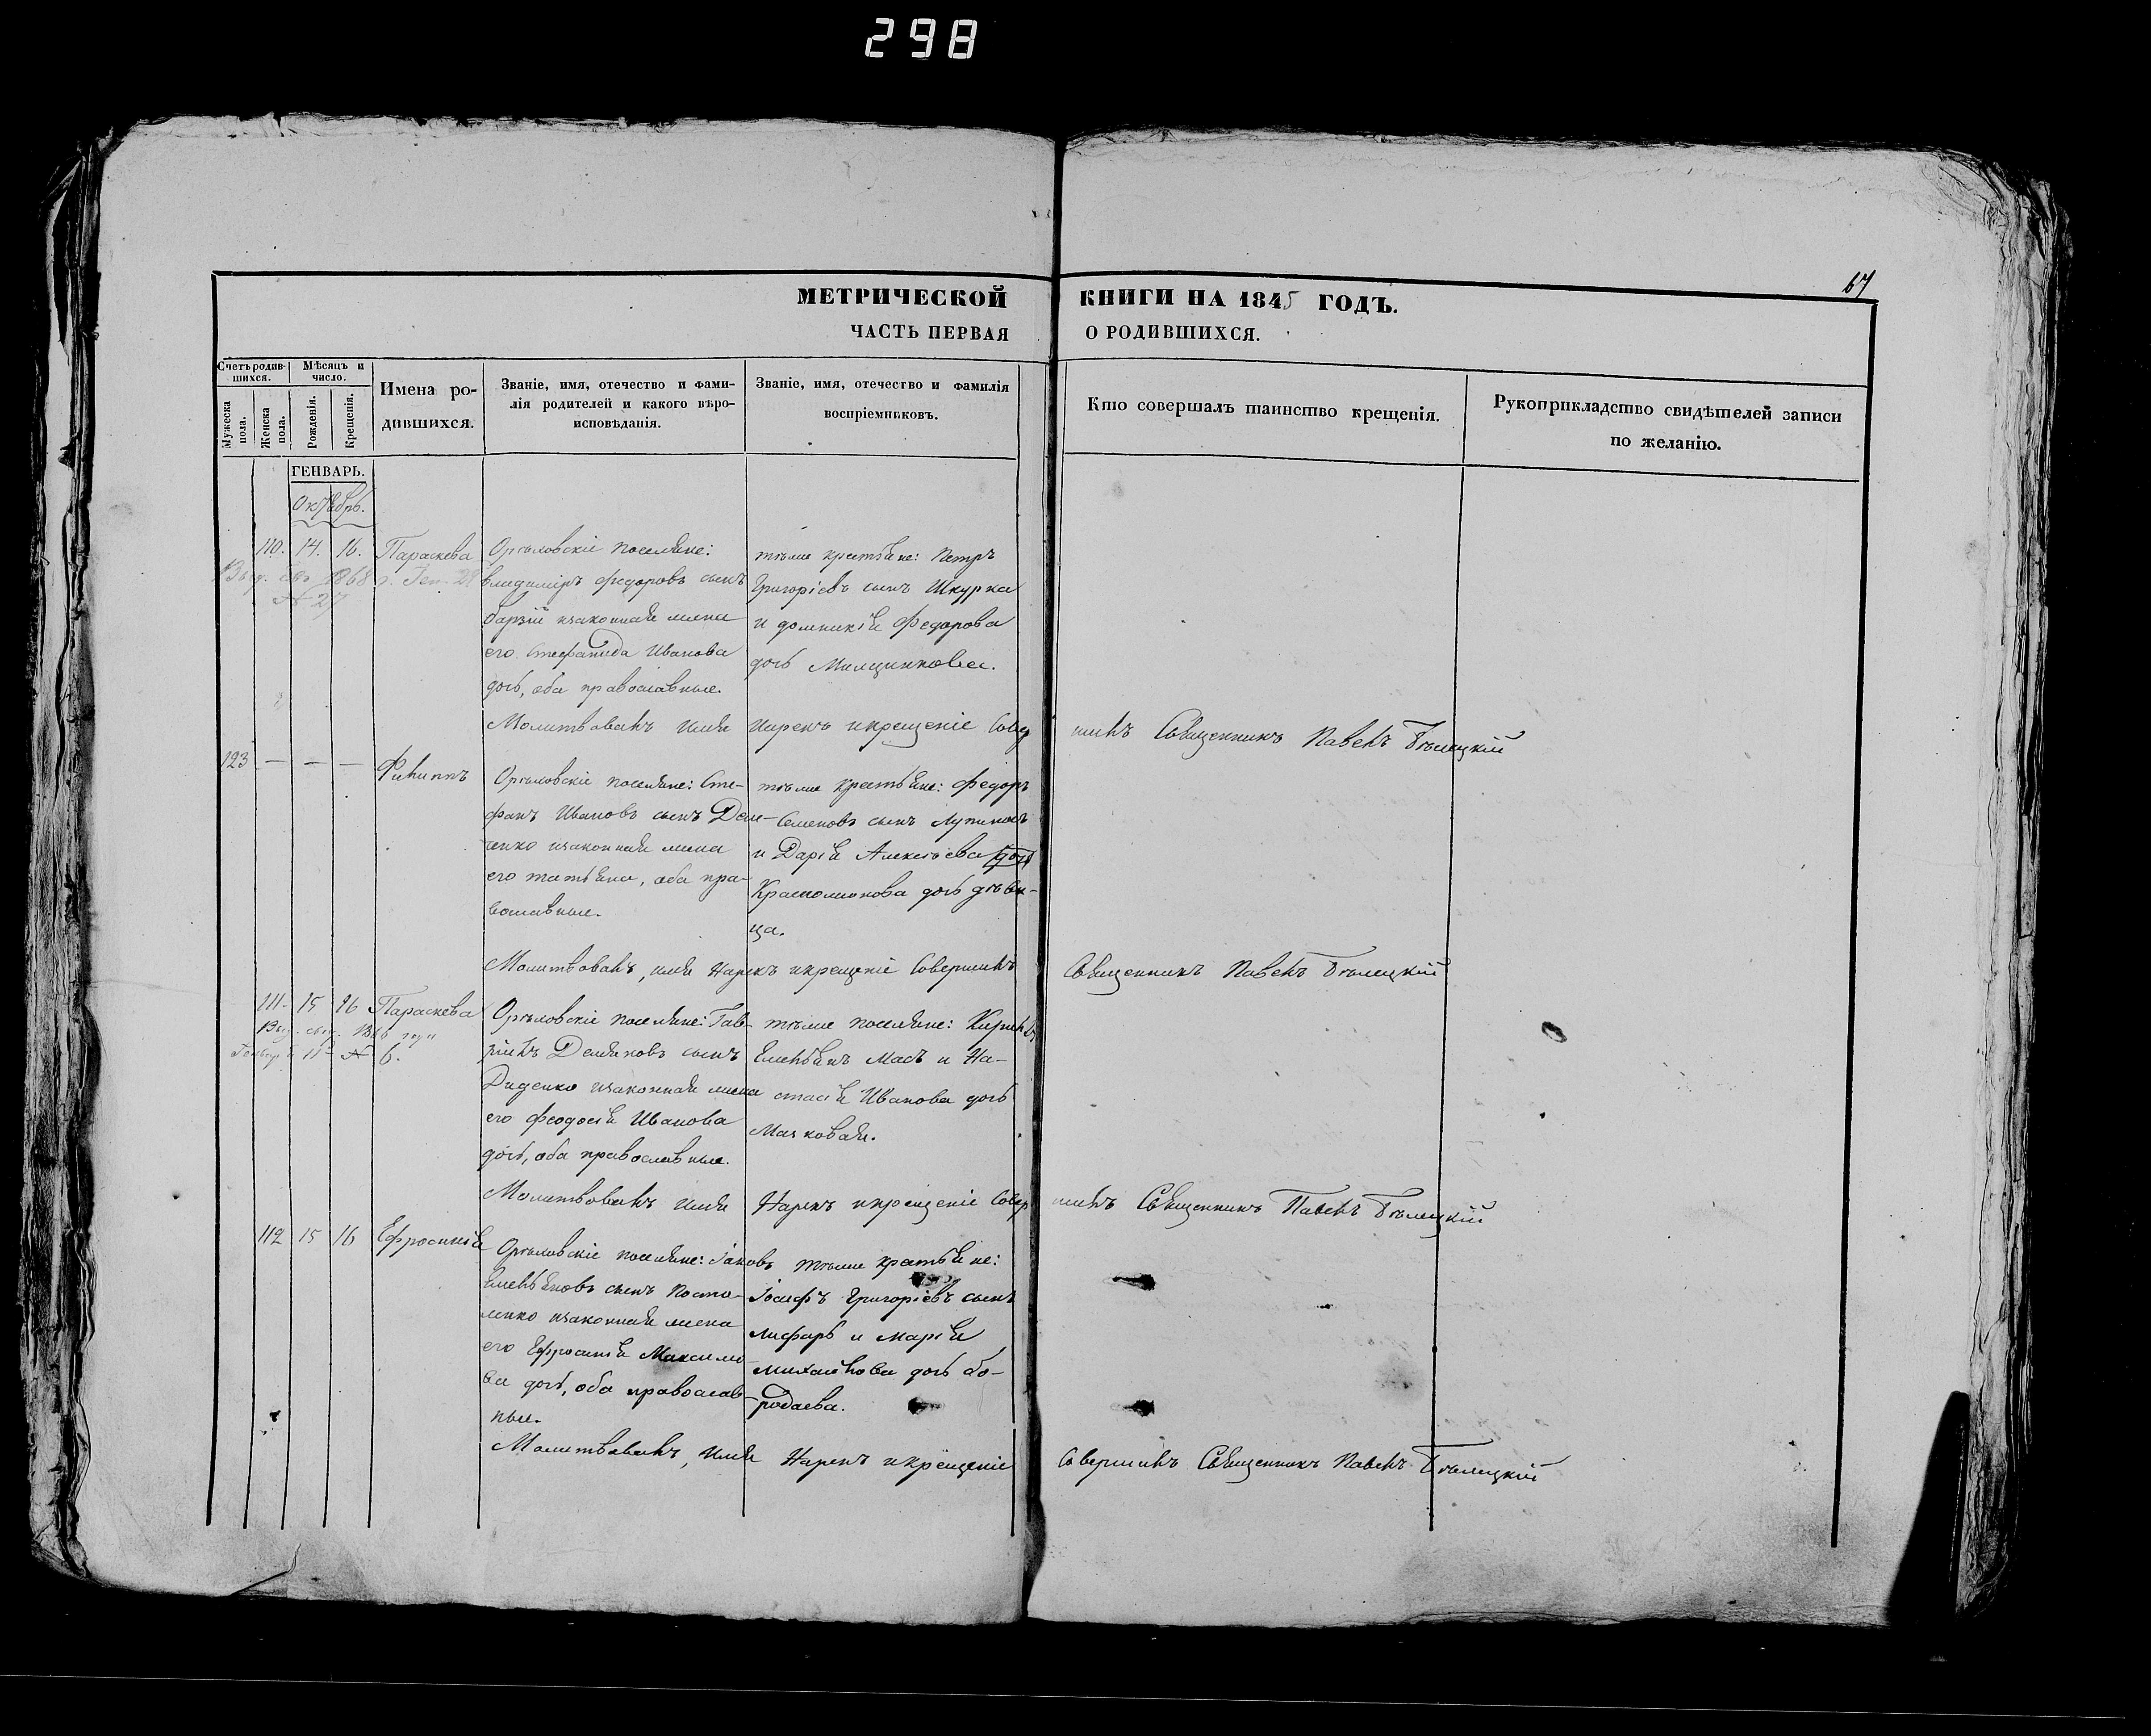 298
67
МЕТРИЧЕСКОЙ КНИГИ НА 1845 ГОДЪ.
ЧАСТЬ ПЕРВАЯ О РОДИВШИХСЯ.
Счетъ родив-
шихся.
Мужеска пола.
Женска пола.
Мѣсяцъ и
число.
Рожденія.
Крещенія.
Имена ро-
дившихся.
Званіе, имя, отечество и фами-
лія родителей и какого вѣро-
исповѣданія.
Званіе, имя, отечество и фамилія
воспріемниковъ.
Кто совершалъ таинство крещенія.
Рукоприкладство свидѣтелей записи
по желанію.
ГЕНВАРЬ.
Октябрь.
110. 14. 16. Параскева
1868
№ 27
Орѣловскіе поселяне:
владиміръ федоровъ сынъ
изаконная жена
его Стефанида Иванова
дочь, оба православные.
тѣже крестьяне: Петръ
Григоріевъ сынъ Шкурка
и домникія Федорова
дочь
Молитвовалъ имя Нарекъ икрещеніе Совер
шилъ Священникъ Павелъ Бѣлецкій
123 — — — Филиппъ
Орѣловскіе поселяне: Сте-
фанъ Ивановъ сынъ Дем-
ченко изаконная жена
его татьяна, оба пра-
вославные.
тѣже крестьяне: федоръ
Семеновъ сынъ
и Дарія Алексѣева дочь
дочь дѣви-
ца.
Молитвовалъ, имя Нарекъ икрещеніе Совершилъ
Священникъ Павелъ Бѣлецкій
111. 15 16 Параскева
№ 6.
Орѣловскіе поселяне: Гав-
ріилъ Демяновъ сынъ
Диденко изаконная жена
его феодосія Иванова
дочь, оба православные.
тѣже поселяне: Кирилъ
Емельянъ Мась и На-
стасія Иванова дочь
Мачковая.
Молитвовалъ имя Нарекъ икрещеніе Совер
шилъ Священникъ Павелъ Бѣлецкій
112 15 16 Ефросинія
Орѣловскіе поселяне: Іаковъ
Емельяновъ сынъ Посто-
ленко изаконная жена
его Ефросинія Максимо-
ва дочь, оба православ-
ные.
тѣже крестьяне:
Іосифъ Григоріевъ сынъ
лифарь и марія
михайлова дочь бо-
родаева.
Молитвовалъ, имя Нарекъ икрещеніе
Совершилъ Священникъ Павелъ Бѣлецкій